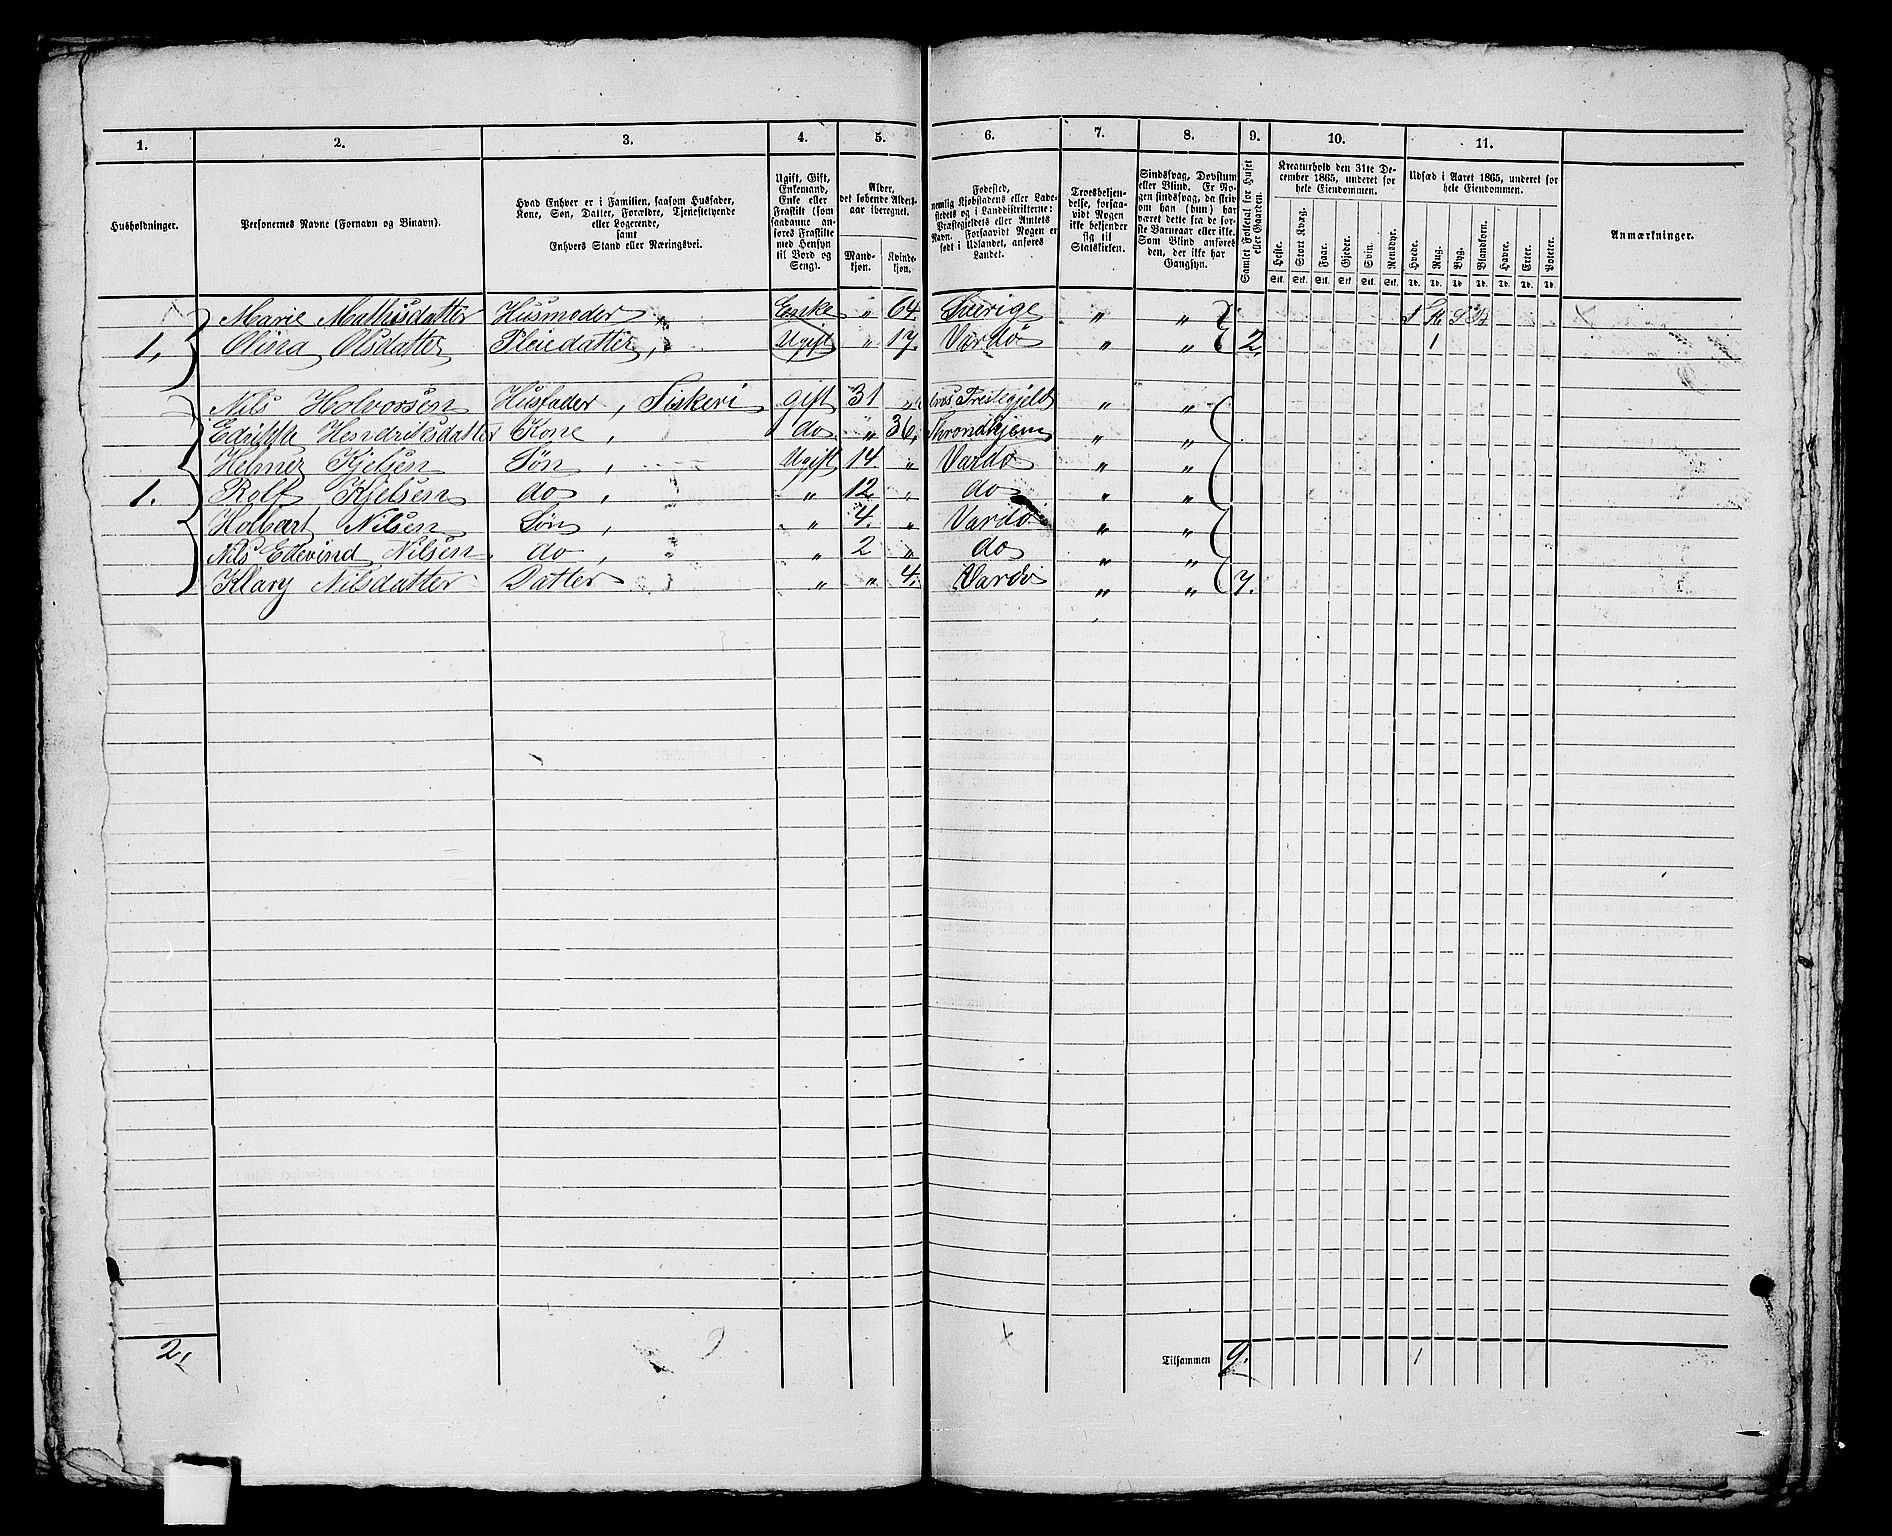 1. 2. 3. 4. 5. 6. 7. 8. 9. 10. 11.
Husholdninger.
Personernes Navne (Fornavn og Binavn).
Hvad Enhver er i Familien, saasom Husfader,
Kone, Søn, Datter, Forældre, Tjenestetyende
eller Logerende,
samt
Enhvers Stand eller Næringsvei.
Ugift, Gift,
Enkemand,
Enke eller
Fraskilt (som
saadanne an-
føres Fraskilte
med Hensyn
til Bord og
Seng).
Alder,
det løbende Alders-
aar iberegnet.
Mand-
kjøn.
Kvinde-
kjøn.
Fødested,
nemlig Kjøbstadens eller Lade-
stedets og i Landdistrikterne:
Præstegjeldets eller Amtets
Navn. Forsaavidt Nogen er
født i Udlandet, anføres
Landet.
Troesbekjen-
delse, forsaa-
vidt Nogen
ikke bekjender
sig til
Statskirken.
Sindssvag, Døvstum
eller Blind. Er No-
gen sindssvag, da skriv
om han (hun) har
været dette fra de før-
ste Barneaar eller ikke.
Som Blind anføres
den, der ikke har
Gangsyn.
Samlet Folketal for Huset
eller Gaarden.
Kreaturhold den 31te De-
cember 1865, underet for
hele Eiendommen.
Heste. Stort Kvæg. Faar. Gjeder. Svin. Rensdyr.
Stk. Stk. Stk. Stk. Stk. Stk.
Udsæd i Aaret 1865, underet for
hele Eiendommen.
Hvede. Rug. Byg. Blandkorn. Havre. Erter. Poteter.
Td. Td. Td. Td. Td. Td. Td.
Anmærkninger.
Marie Mathisdatter Husmoder „ Enke „ 64. Sverige „ „
1, Olina Olsdatter Pleiedatter, Ugift „ 17. Vardø „ „ 2. 1
Nils Holvorsen Husfader, Fiskeri gift 31 „ Præstegjeld „ „
Hendriksdatter Kone, do „ 36, Throndhjem „ „
Helmer Kjelsen Søn, Ugift 14. „ Vardø „ „
1. Rolf Kjelsen do, „ 12 „ do „ „
Holbært Nilsen Søn, „ 4. „ Vardø „ „
Nils Edevind Nilsen do, „ 2 „ do „ „
Klary Nilsdatter Datter „ „ 4. Vardø „ „ 7.
2,
Tilsammen 9. 1